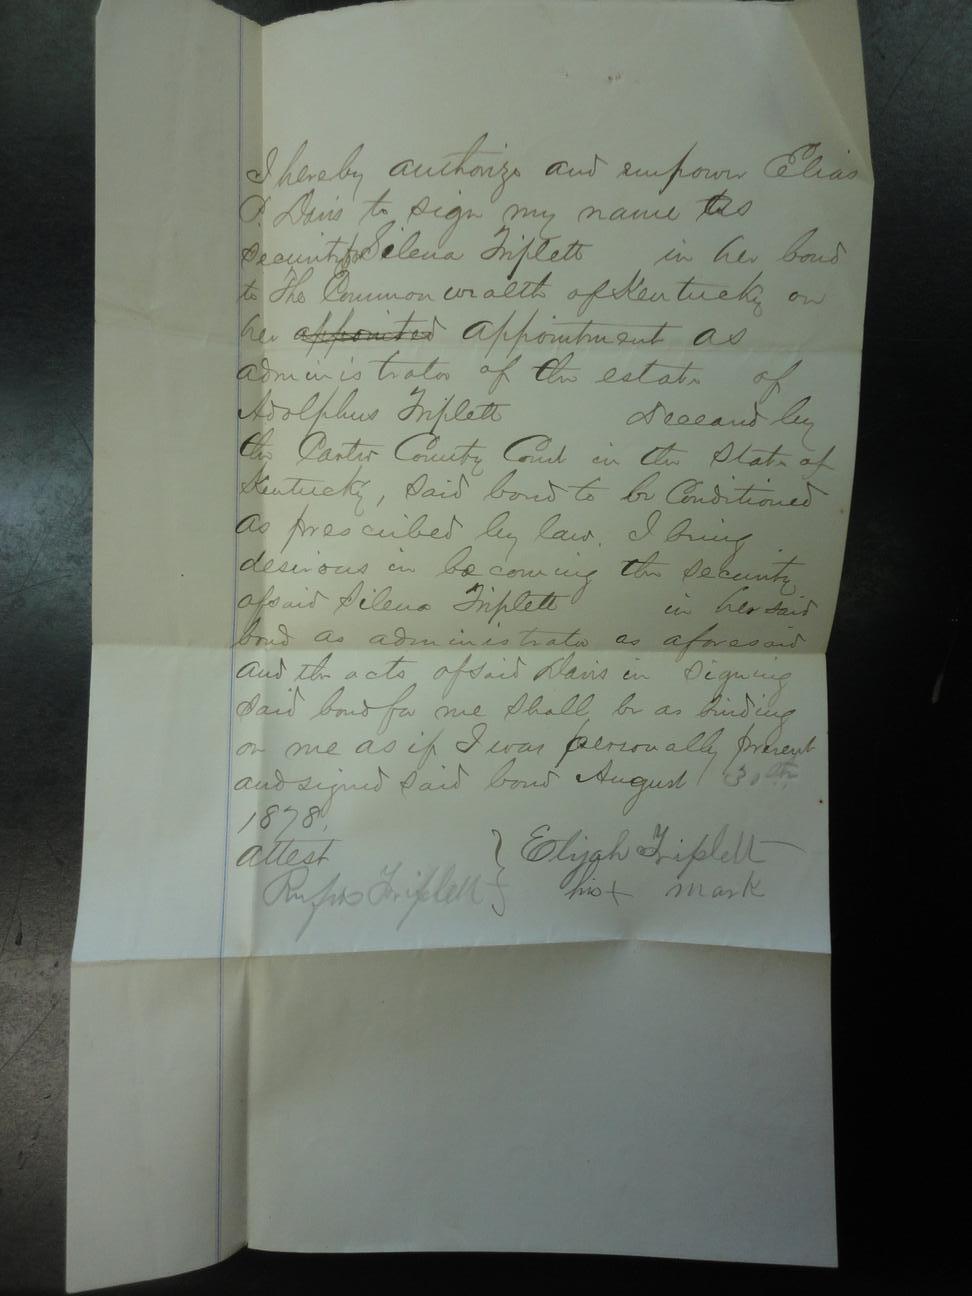 I hereby authorize and empower Elias
P. Davis to sign my name as
security for Silena Triplett in her bond
to The Commonwealth of Kentucky on
her appointed appointment as
administrator of the estate of
Adolphus Triplett deceasd by
the Carter County Court in the State of
Kentucky, said bond to be Conditioned
as prescribed by law. I being
desirous in becoming the security
of said Silena Triplett in her said
bond as administrator as aforesaid
and the acts of said Davis in signing
said bond for me shall be as binding
on me as if I was personally present
and signed said bond August 30th
1878.
attest } Elijah Triplett
Rufus Triplett } his + mark